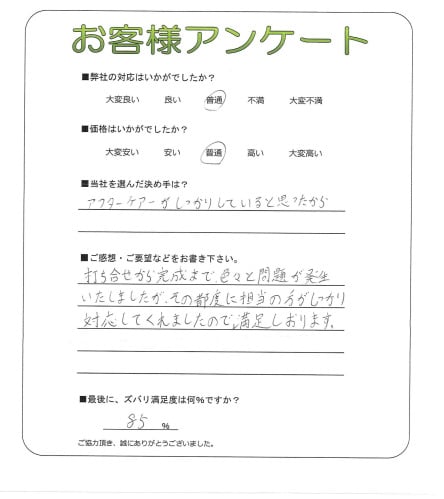 お客様アンケート
■弊社の対応はいかがでしたか?
大変良い 良い 普通 不満 大変不満
■価格はいかがでしたか?
大変安い 安い 普通 高い 大変高い
■当社を選んだ決め手は?
アフターケアーがしっかりしていると思ったから
■ご感想・ご要望などをお書き下さい。
打ち合せから完成まで、色々と問題が発生
いたしましたが、その都度に担当の方がしっかり
対応してくれましたので満足しおります。
■最後に、ズバリ満足度は何%ですか?
85 %
ご協力頂き、誠にありがとうございました。